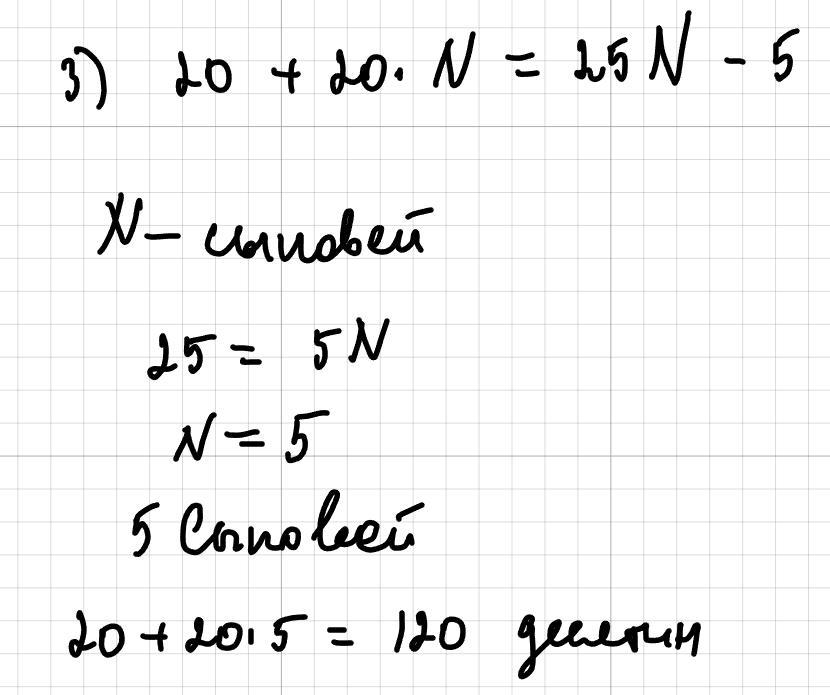 3) 20 + 20 · N = 25 N - 5
N - сыновей
25 = 5 N
N = 5
5 Сыновей
20 + 20 · 5 = 120 десятин